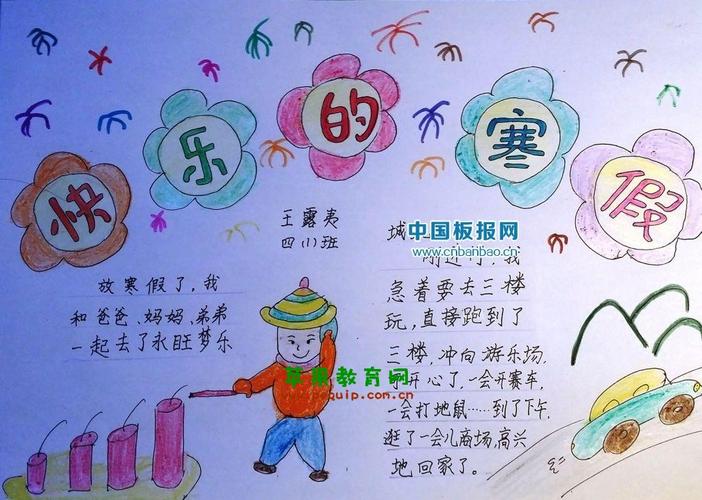 快乐的寒假
王露夷
四(1)班
放寒假了，我
和爸爸、妈妈、弟弟
一起去了永旺梦乐
城
中国板报网
www.cnbanbao.cn
我
急着要去三楼
玩，直接跑到了
三楼，冲向游乐场，
开心了，一会开赛车，
一会打地鼠……到了下午，
逛了一会儿商场，高兴
地回家了。
苹果教育网